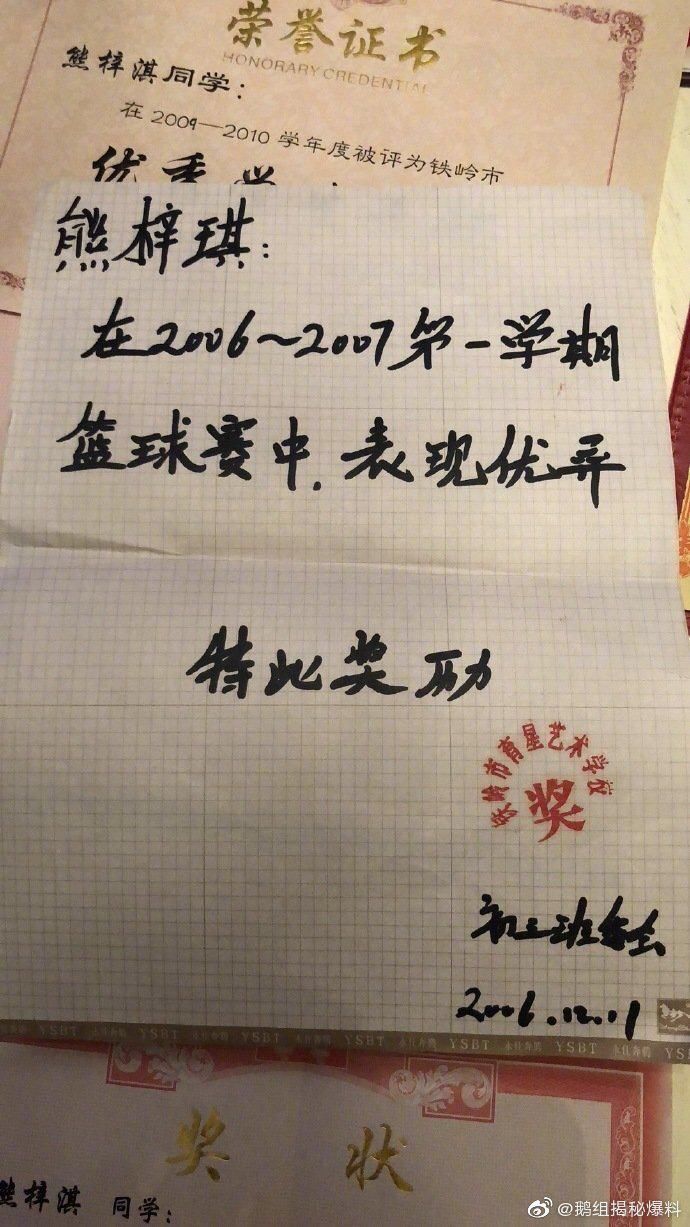 荣誉证书
HONORARY CREDENTIAL
熊梓淇同学：
在2009—2010学年度被评为铁岭市
优秀学
熊梓琪：
在2006～2007第一学期
篮球赛中，表现优异
特此奖励
铁岭市育星艺术学校
奖
初三班委会
2006.12.19
YSBT 永仕奔腾 YSBT 永仕奔腾 YSBT 永仕奔腾 YSBT
奖 状
熊梓淇 同学：
@鹅组揭秘爆料